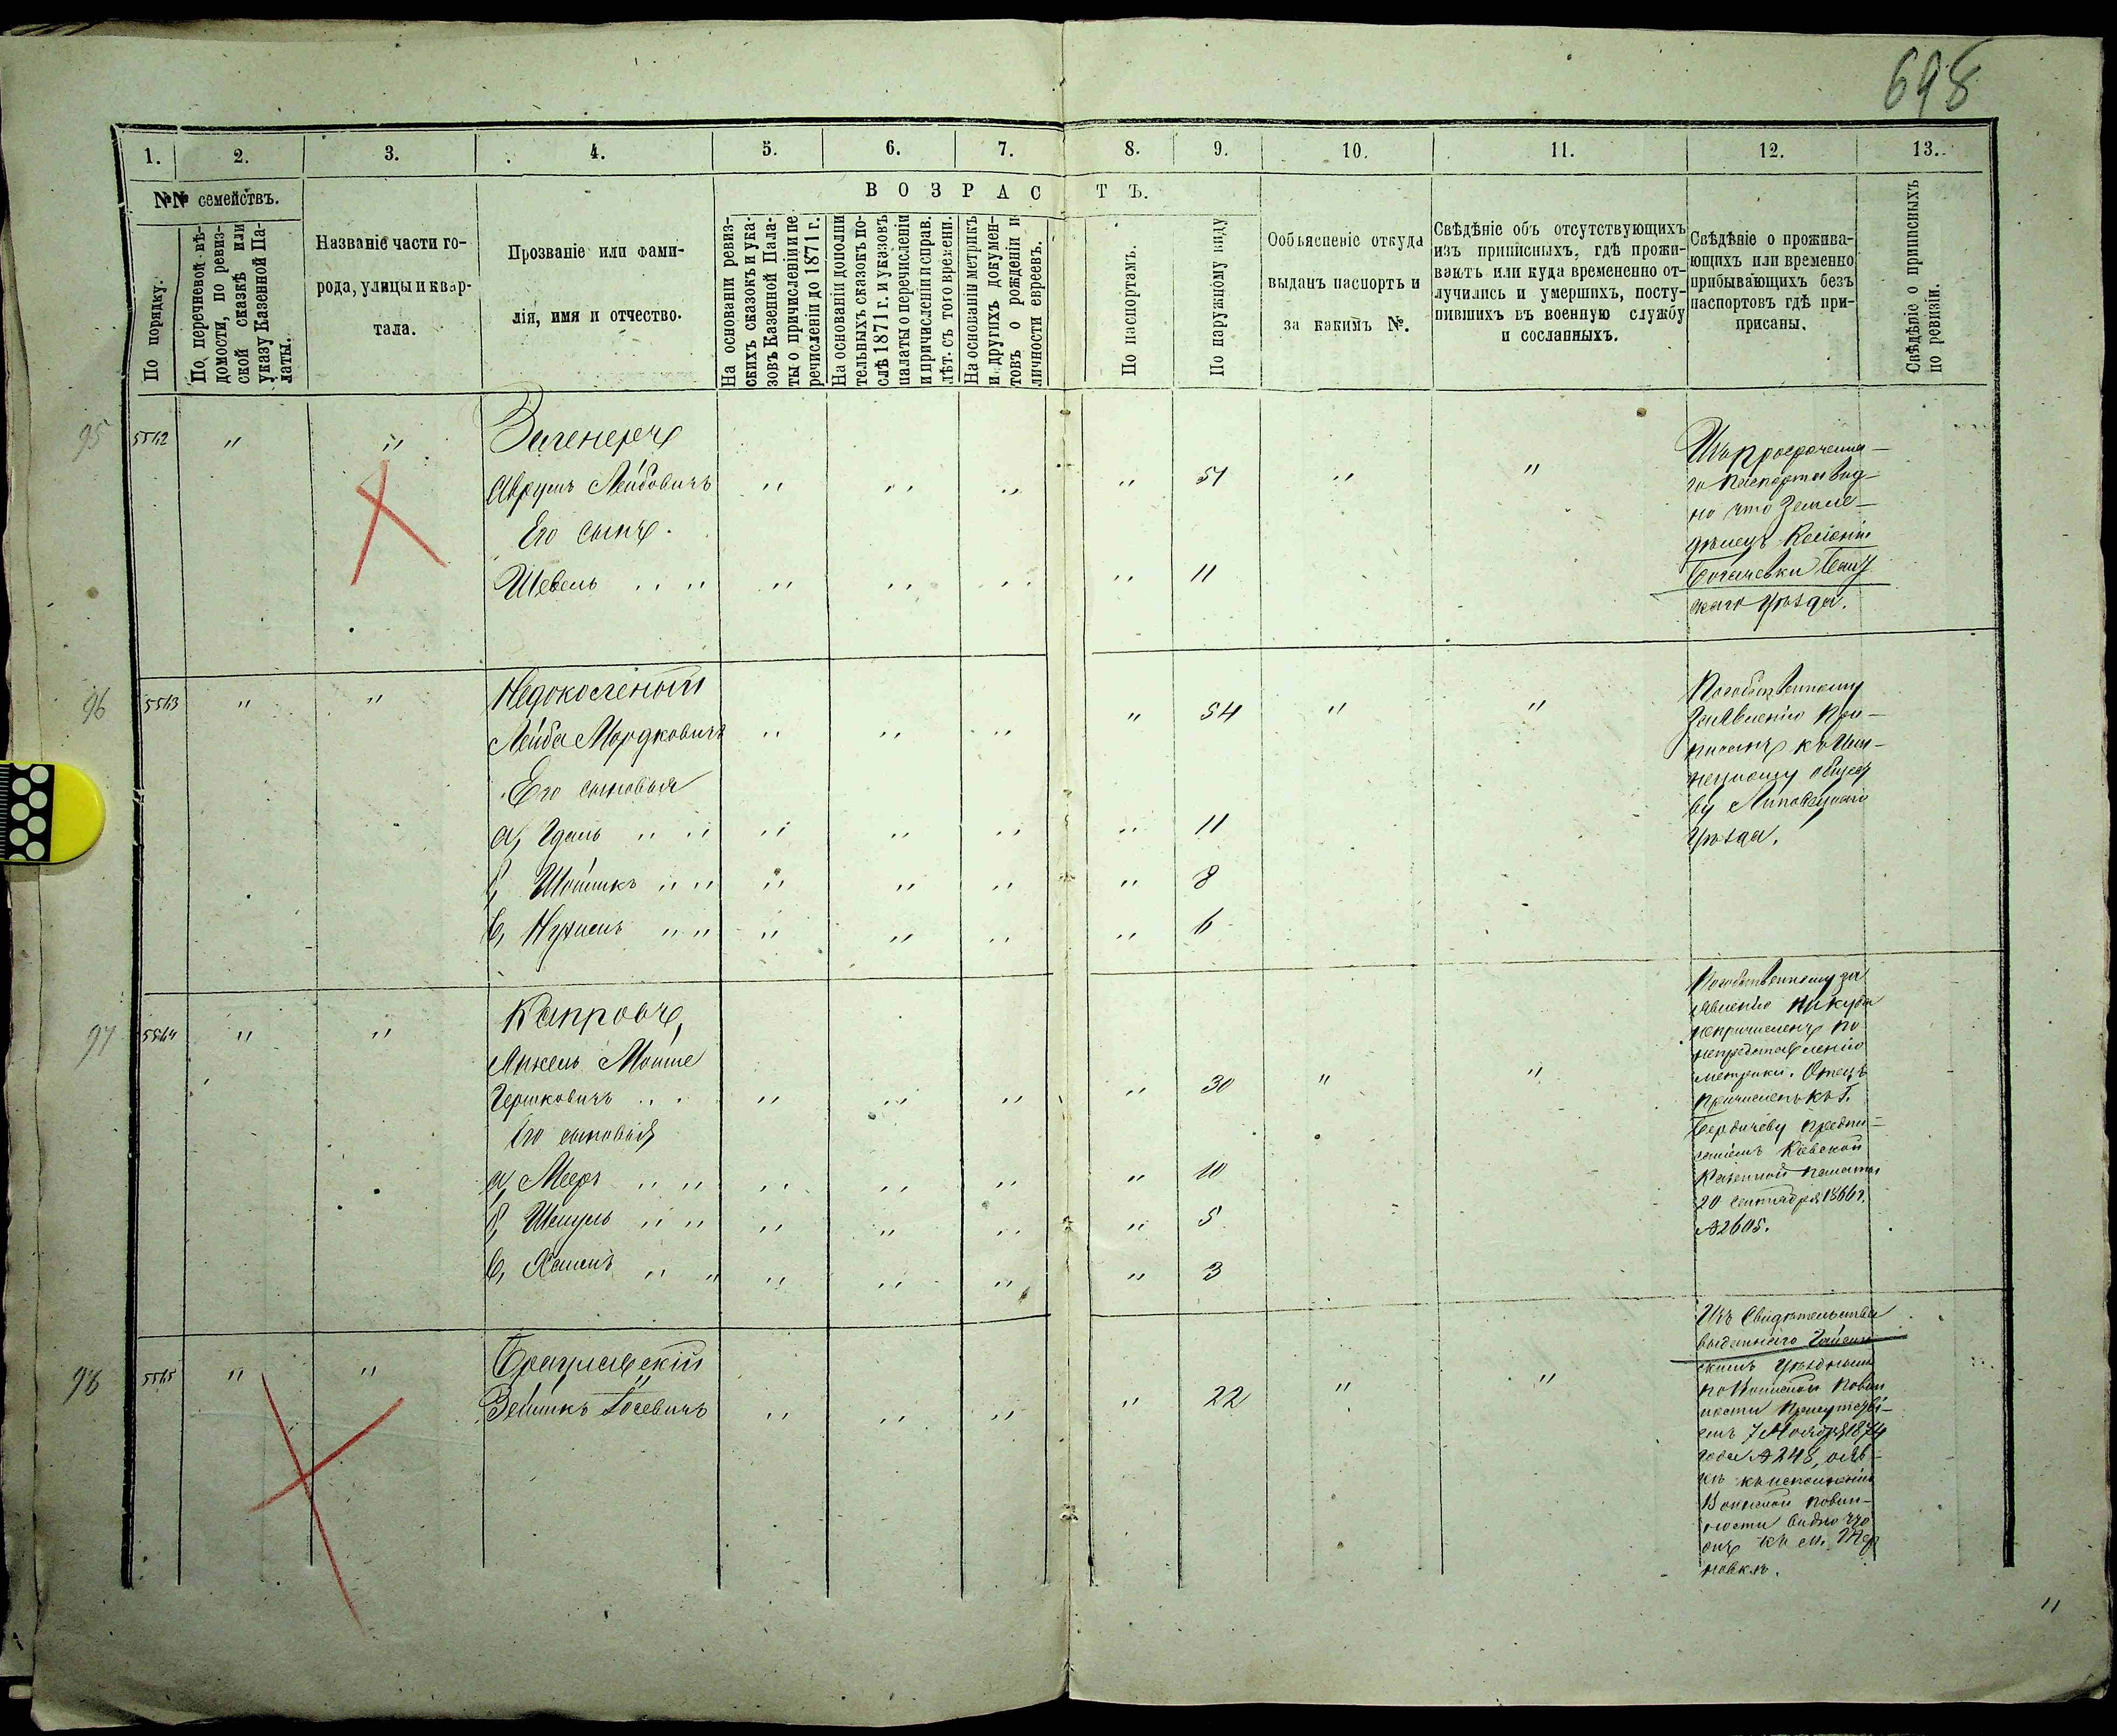 698
1. 2. 3. 4. 5. 6. 7. 8. 9. 10. 11. 12. 13.
№№ семействъ.
По порядку.
По перечневой вѣ-
домости, по ревиз-
ской сказкѣ или
указу Казенной Па-
латы.
Названіе части го-
рода, улицы и квар-
тала.
Прозваніе или фами-
лія, имя и отчество.
ВОЗРАСТЪ.
На основаніи ревиз-
скихъ сказокъ и ука-
зовъ Казенной Пала-
ты о причисленіи и пе
речисленіи до 1871 г.
На основаніи дополни
тельныхъ сказокъ по-
слѣ 1871 г. и указовъ
палаты о перечисленіи
и причисленіи и справ.
лѣт. съ того времени.
На основаніи метрикъ
и другихъ докумен-
товъ о рожденіи и
личности евреевъ.
По паспортамъ.
По наружному виду
Объясненіе откуда
выданъ паспортъ и
за какимъ №.
Свѣдѣніе объ отсутствующихъ
изъ приписныхъ, гдѣ прожи-
ваютъ или куда временно от-
лучились и умершихъ, посту-
пившихъ въ военную службу
и сосланныхъ.
Свѣдѣніе о прожива-
ющихъ или временно
прибывающихъ безъ
паспортовъ гдѣ при-
писаны.
Свѣдѣніе о приписныхъ
по ревизіи.
95 5562 " "
Аврумъ Лейбовичъ " " " " 51 " "
Его сынъ.
Шевель " " " " " " 11
Изъ просроченна-
го паспорта вид-
но что земле-
дѣлецъ Колоніи
Богачевки
скаго Уѣзда.
96 5563 " "
Лейба Мордковичъ " " " " 54 " "
Его сыновья
а, Удель " " " " " " 11
б, Шойликъ " " " " " " 8
в, Нухимъ " " " " " " 6
По собственному
заявленію при-
писанъ къ Мѣщ-
ву Липовецкаго
Уѣзда.
97 5564 " "
Капровъ,
Мойше
Гершковичъ " " " " " " 30 " "
Его сыновья
а, Мееръ " " " " " " 10
б, Шмуль " " " " " " 5
в, Хаимъ " " " " " " 3
По собственному за
явленію никуда
непричисленъ по
непредставленію
метрики. Отецъ
причисленъ къ Г.
Бердичеву предпи-
саніемъ Кіевской
Казенной палаты
20 сентября 1866 г.
№ 2605.
98 5565 " "
Брацлавскій
Зейликъ Іосевичъ " " " " 22 " "
Изъ свидѣтельства
выданнаго Гайсин
скимъ Уѣзднымъ
по Воинской повин
ности присутстві-
емъ 7 Ноября 1874
года № 248, о явк
къ исполненію
Воинской повин-
ности видно что
онъ къ м. Тер
новкѣ.